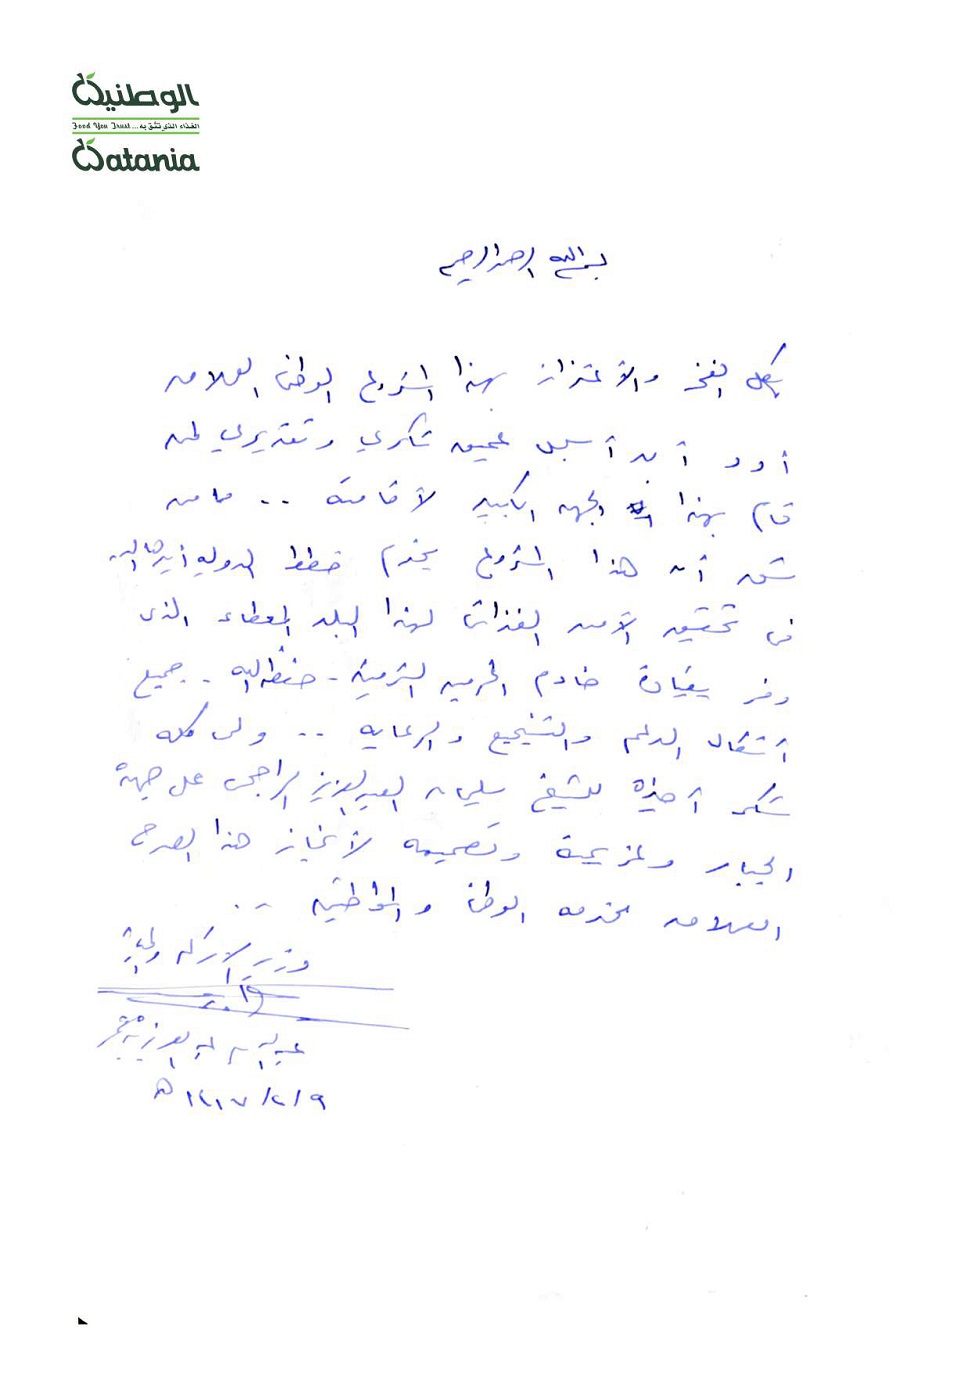 الوطنية
Food You Trust... الغذاء الذي تثق به
Watania
بسم الله الرحمن الرحيم
بكل الفخر والأعتزاز بهذا المشروع الوطني العملاق
أود أن أسجل عميق شكري وتقديري لمن
قام بهذا الجهد الكبير لأقامته .. فما من
شك أن هذا المشروع يخدم خطط الدولة أيدها الله
في تحقيق الأمن الغذائي لهذا البلد المعطاء الذي
وفر بقيادة خادم الحرمين الشريفين - حفظه الله - جميع
أشكال الدعم والتشجيع والرعاية .. ولي كلمة
شكر أخيرة للشيخ سليمان العبدالعزيز الراجحي على جهده
الجبار وعزيمته وتصميمه لأنجاز هذا الصرح
العملاق لخدمة الوطن والمواطنين ..
وزير الزراعة والمياه
عبدالله بن عبدالعزيز بن معمر
١٤١٧/٢/٩ هـ